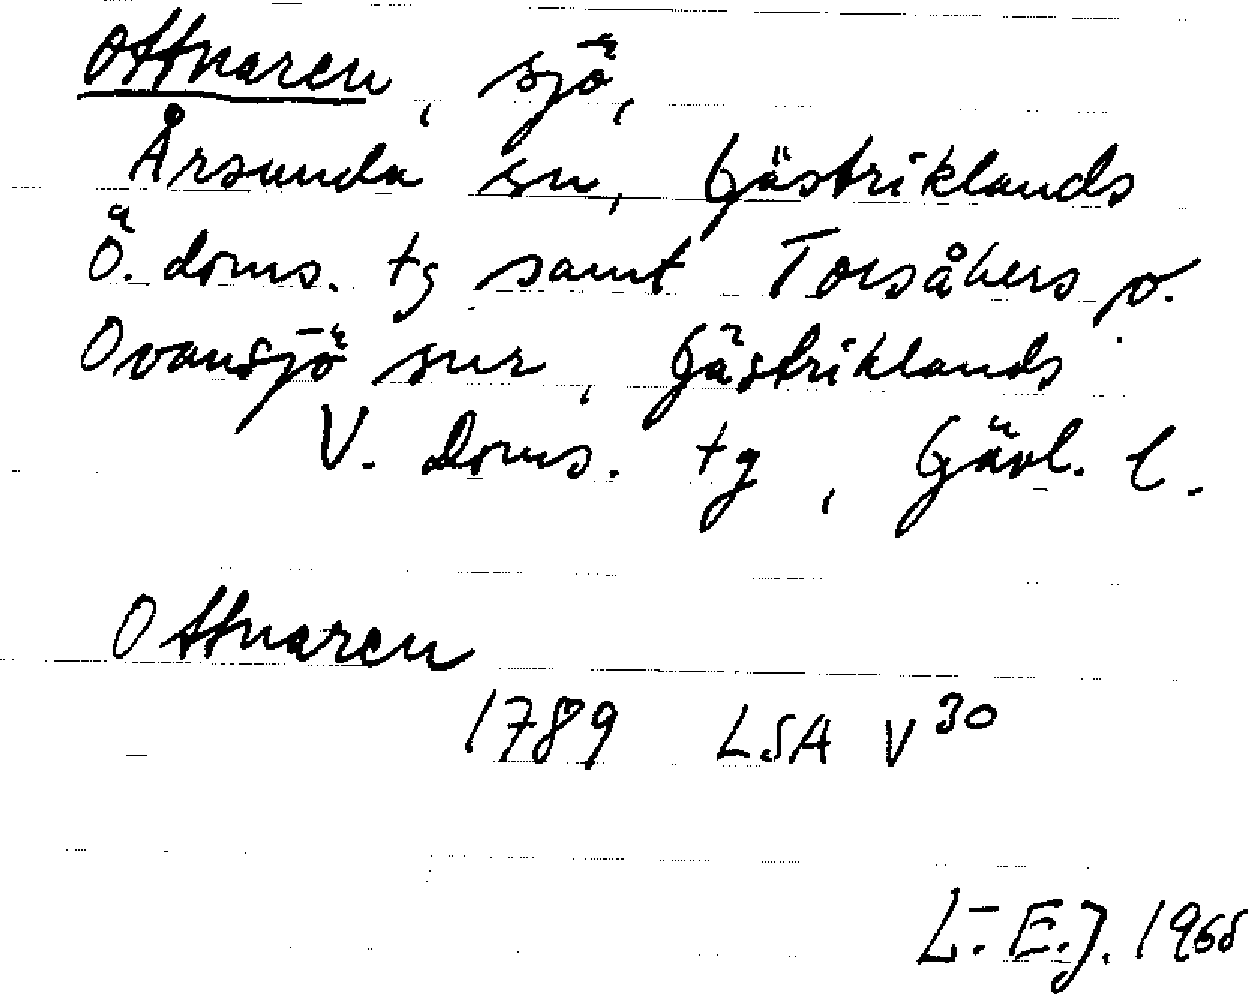 Ottnaren, sjö,
Årsunda sn, Gästriklands
Ö. doms. tg samt Torsåkers o.
Ovansjö snr, Gästriklands
V. Doms. tg, Gävl. l.
Ottnaren
1789 LSA V30
L.-E.J. 1965